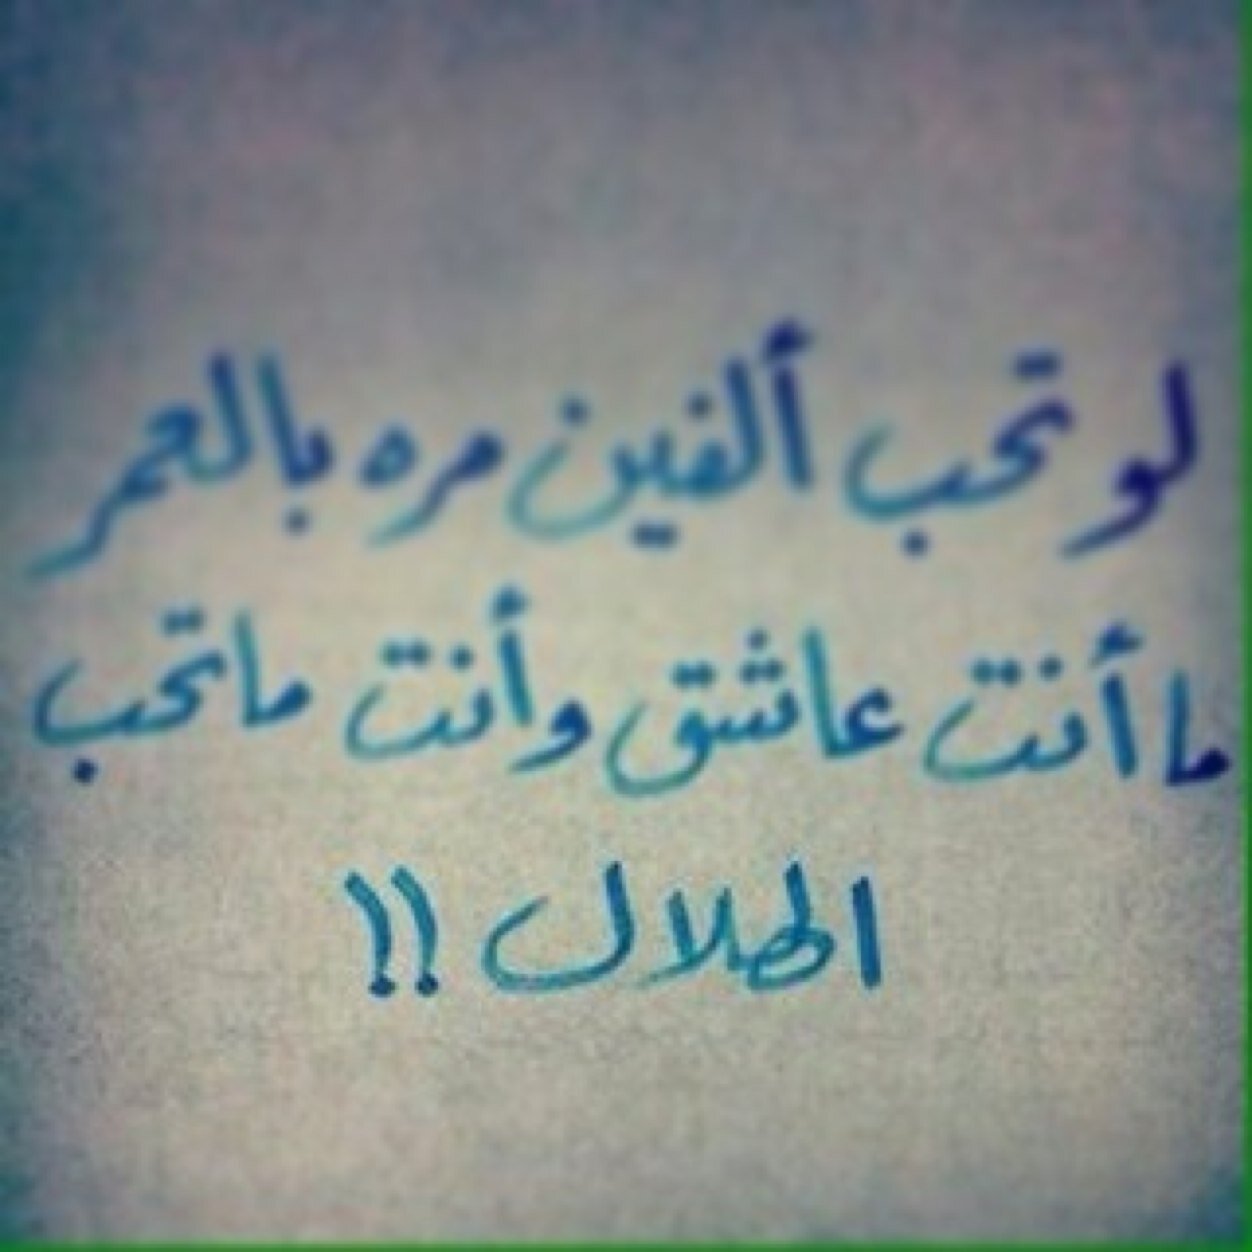 لو تحب ألفين مره بالعمر
ما أنت عاشق وأنت ماتحب
الهلال !!